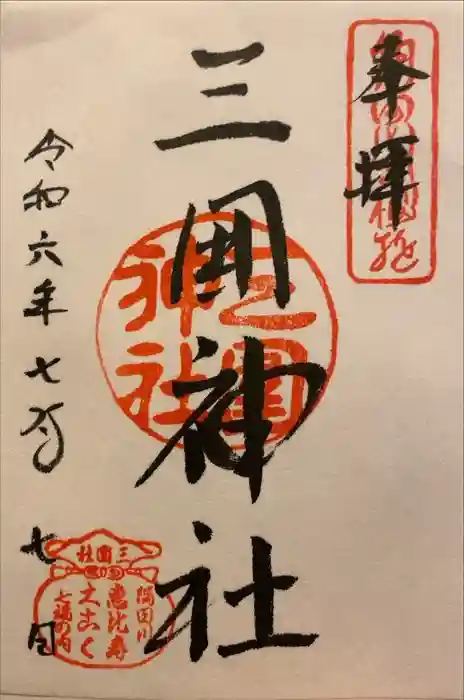 奉拝
三囲神社
三圍
神社
令和六年七月七日
三圍社
隅田川
恵比寿
大こく
七福の内